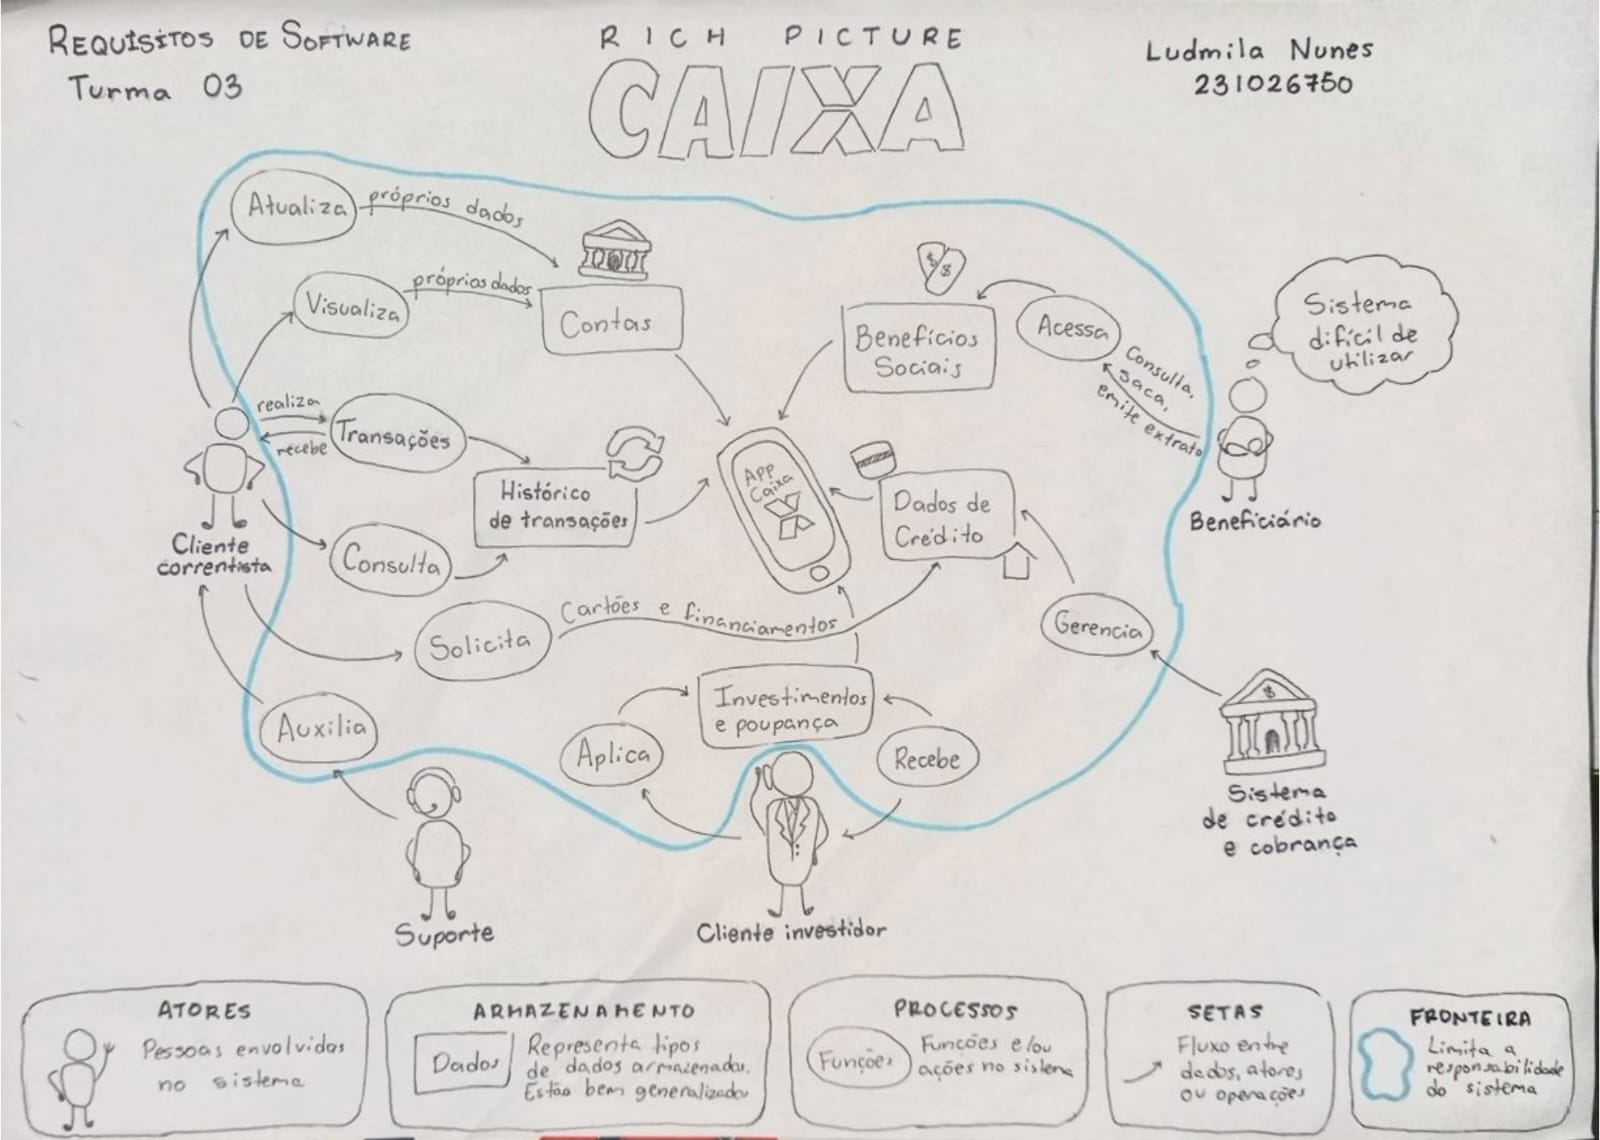 REQUISITOS DE SOFTWARE
Turma 03
RICH PICTURE
CAIXA
Ludmila Nunes
231026750
Atualiza
próprios dados
Visualiza
próprios dados
Contas
Benefícios
Sociais
Acessa
Consulta,
saca,
emite extrato
Sistema
difícil de
utilizar
Beneficiário
realiza
recebe
Transações
Histórico
de transações
App
Caixa
Dados de
Crédito
Cliente
correntista
Consulta
Solicita
Cartões e financiamentos
Gerencia
Sistema
de crédito
e cobrança
Auxilia
Suporte
Investimentos
e poupança
Aplica
Recebe
Cliente investidor
ATORES
Pessoas envolvidas
no sistema
ARMAZENAMENTO
Dados
Representa tipos
de dados armazenados.
Estão bem generalizados
PROCESSOS
Funções
Funções e/ou
ações no sistema
SETAS
Fluxo entre
dados, atores
ou operações
FRONTEIRA
Limita a
responsabilidade
do sistema